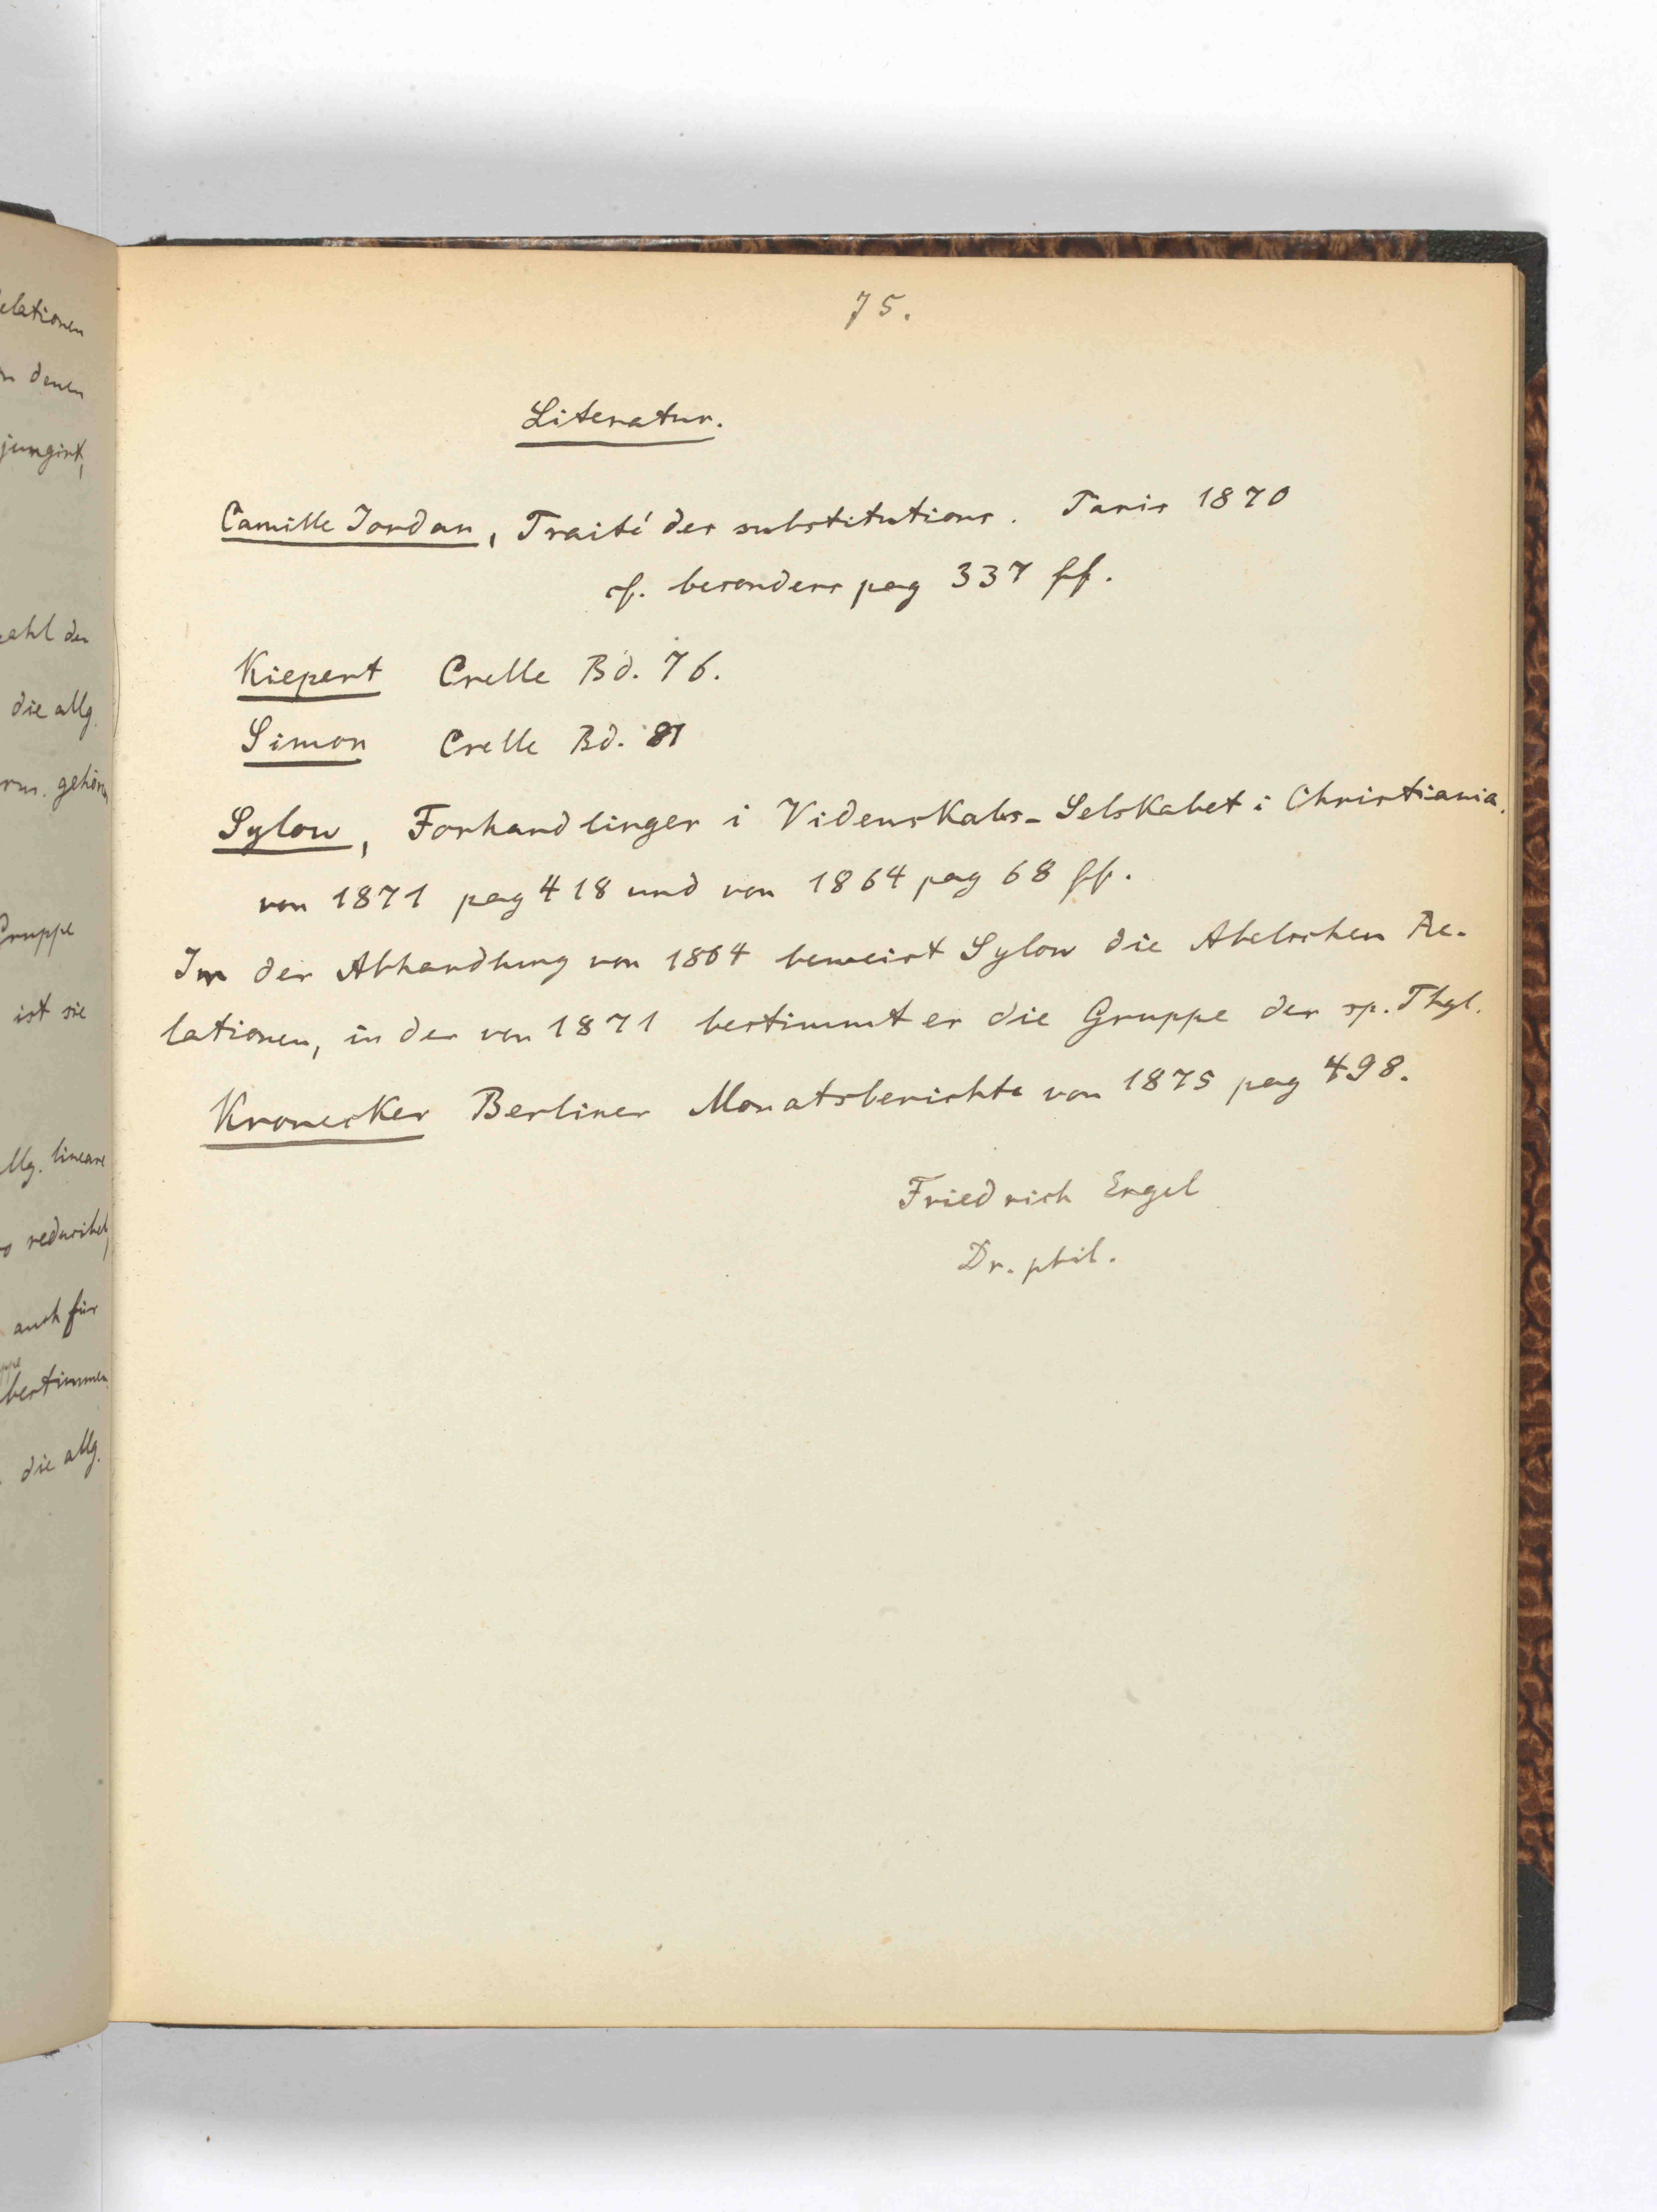 elationen
denen
jungirt,
zahl der
die allg.
gehören
Gruppe
ist sie
allg. lineare
so reducibel,
auch für
bestimmen
die allg.
75.
Literatur.
Camille Jordan, Traité des substitutions. Paris 1870
cf. besonders pag 337 ff.
Kiepert Crelle Bd. 76.
Simon Crelle Bd. 81
Sylow, Forhandlinger i Videnskabs-Selskabet i Christiania.
von 1871 pag 418 und von 1864 pag 68 ff.
In der Abhandlung von 1864 beweist Sylow die Abelschen Re-
lationen, in der von 1871 bestimmt er die Gruppe der sp. Thgl.
Kronecker Berliner Monatsberichte von 1875 pag 498.
Friedrich Engel
Dr. phil.